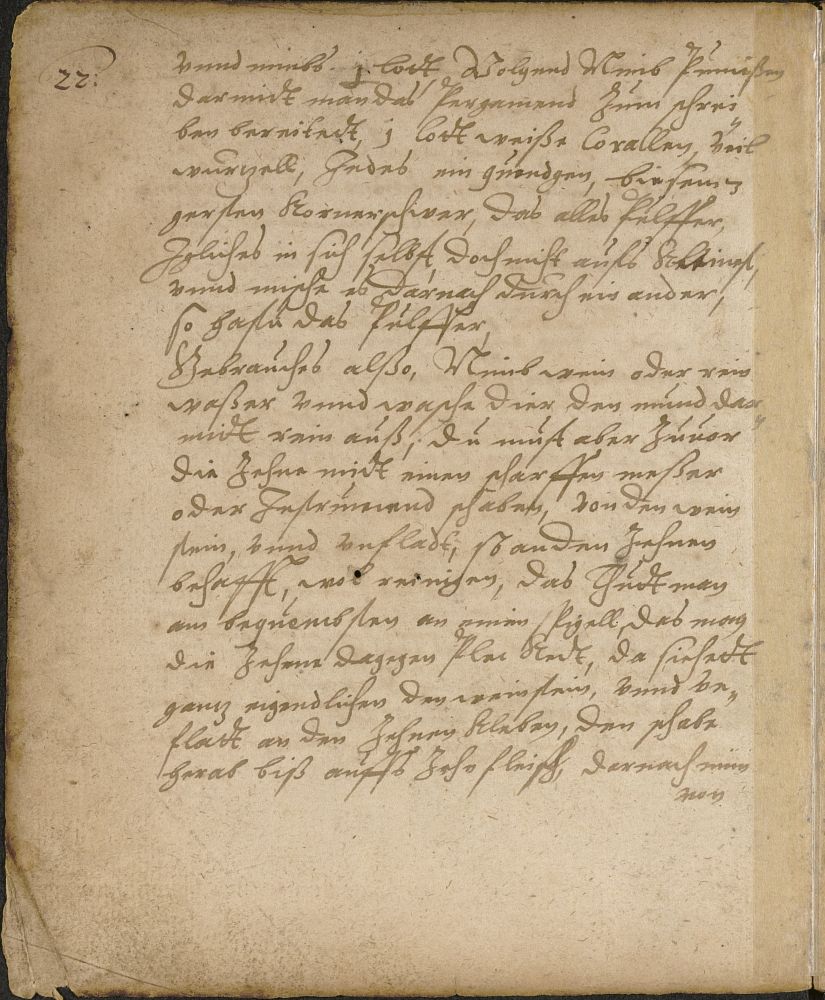 22:
vnnd nimbs j lodt, Volgend Nimb Pimissen
darmidt man das Pergamend Zum schrei
ben bereitedt, j lodt weiße Corallen, Veil
wurtzell, Jedes ein quendgen, biesem
gersten Korner schwer, das alles Pulffer,
Jgliches in sich selbst, doch nicht aufs Kleinest,
vnnd mische es darnach durch ein ander,
so hastu das Pulffer,
Gebrauches alßo, Nimb wein oder rein
waßer vnnd wasche dier den mund dar
midt rein auß, du must aber Zuuor
die Zehne midt einen scharffen meßer
oder Jnstrumend schaben, von den wein
stein, vnnd vnfladt, so an den Zehnen
behafft, wol reinigen, das Thudt man
am bequembsten an einen Spigell, das mag
die Zehne dagegen Steckt, da siehedt
gantz eigendlichen den weinstein, vnnd vn
fladt an den Zehnen Kleben, den schabe
herab biß auffs Zehn fleisch, darnach nim
von